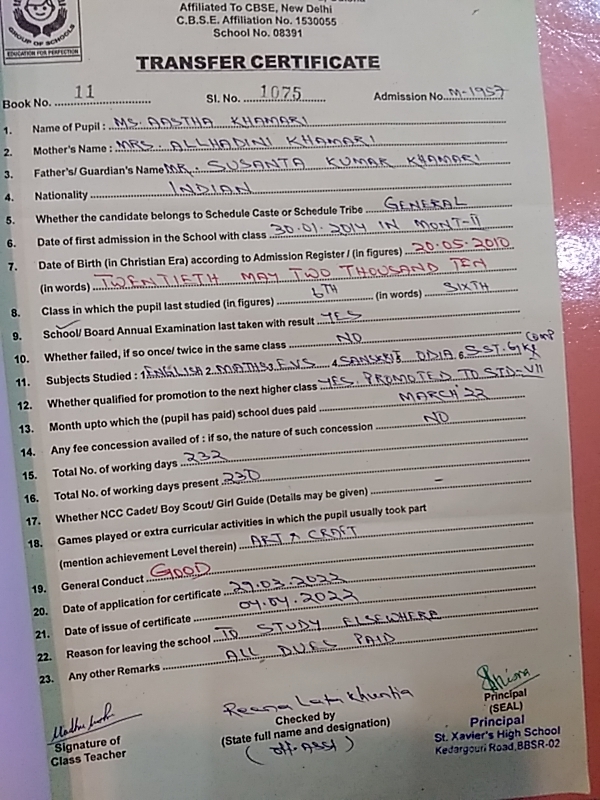 Affiliated To CBSE, New Delhi
C.B.S.E. Affiliation No. 1530055
School No. 08391
GROUP OF SCHOOLS
EDUCATION FOR PERFECTION
TRANSFER CERTIFICATE
Book No. 11 Sl. No. 1075 Admission No. M-1957
1. Name of Pupil : MS. AASTHA KHAMARI
2. Mother's Name : MRS. ALLHADINI KHAMARI
3. Father's/ Guardian's Name MR. SUSANTA KUMAR KHAMARI
4. Nationality INDIAN
5. Whether the candidate belongs to Schedule Caste or Schedule Tribe GENERAL
6. Date of first admission in the School with class 30.01.2014 IN MONT-II
7. Date of Birth (in Christian Era) according to Admission Register / (in figures) 20.05.2010
(in words) TWENTIETH MAY TWO THOUSAND TEN
8. Class in which the pupil last studied (in figures) 6TH (in words) SIXTH
9. School/ Board Annual Examination last taken with result YES
10. Whether failed, if so once/ twice in the same class NO
11. Subjects Studied : 1 ENGLISH 2 MATHS 3 EVS 4 SANSKRIT 5 ODIA 6 S.ST. G.K Comp
12. Whether qualified for promotion to the next higher class YES. PROMOTED TO STD-VII
13. Month upto which the (pupil has paid) school dues paid MARCH'22
14. Any fee concession availed of : if so, the nature of such concession NO
15. Total No. of working days 232
16. Total No. of working days present 230
17. Whether NCC Cadet/ Boy Scout/ Girl Guide (Details may be given) -
18. Games played or extra curricular activities in which the pupil usually took part
(mention achievement Level therein) ART & CRAFT
19. General Conduct GOOD
20. Date of application for certificate 29.03.2022
21. Date of issue of certificate 04.04.2022
22. Reason for leaving the school TO STUDY ELSEWHERE
23. Any other Remarks ALL DUES PAID
Signature of
Class Teacher
Reena Lata Khuntia
Checked by
(State full name and designation)
(off. ASST)
Principal
(SEAL)
Principal
St. Xavier's High School
Kedargouri Road, BBSR-02